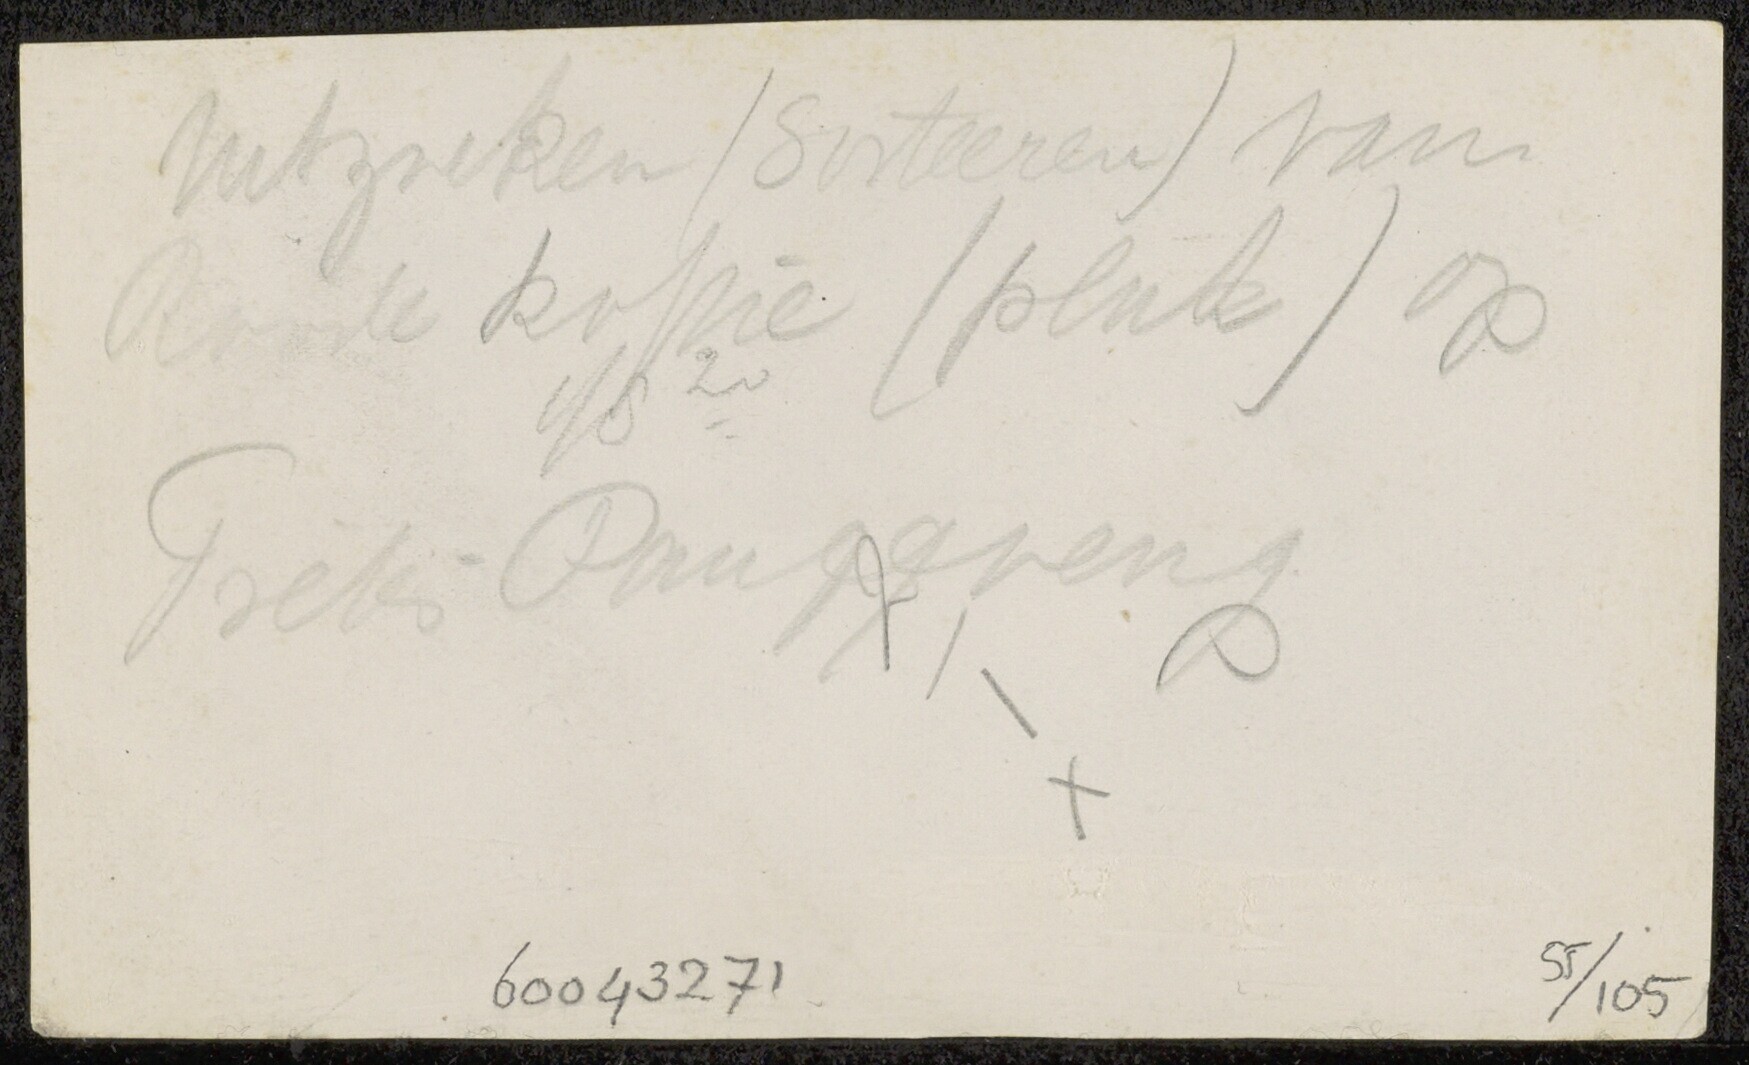 Uitzoeken (Sorteeren) van
Roode koffie (pluk) op
20
Tretes Panggoeng
+
60043271
55/105